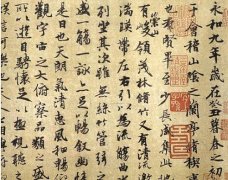 永和九年歲在癸丑暮春之初
于會稽山陰之蘭亭脩稧
也羣賢畢至少長咸集此
有崇山峻領茂林脩竹又有清流
湍暎帶左右引以為流觴曲
列坐其次雖無絲竹管弦
盛一觴一詠亦足以暢敘幽
是日也天朗氣清惠風和暢
觀宇宙之大俯察品類之
所以遊目騁懷足以極